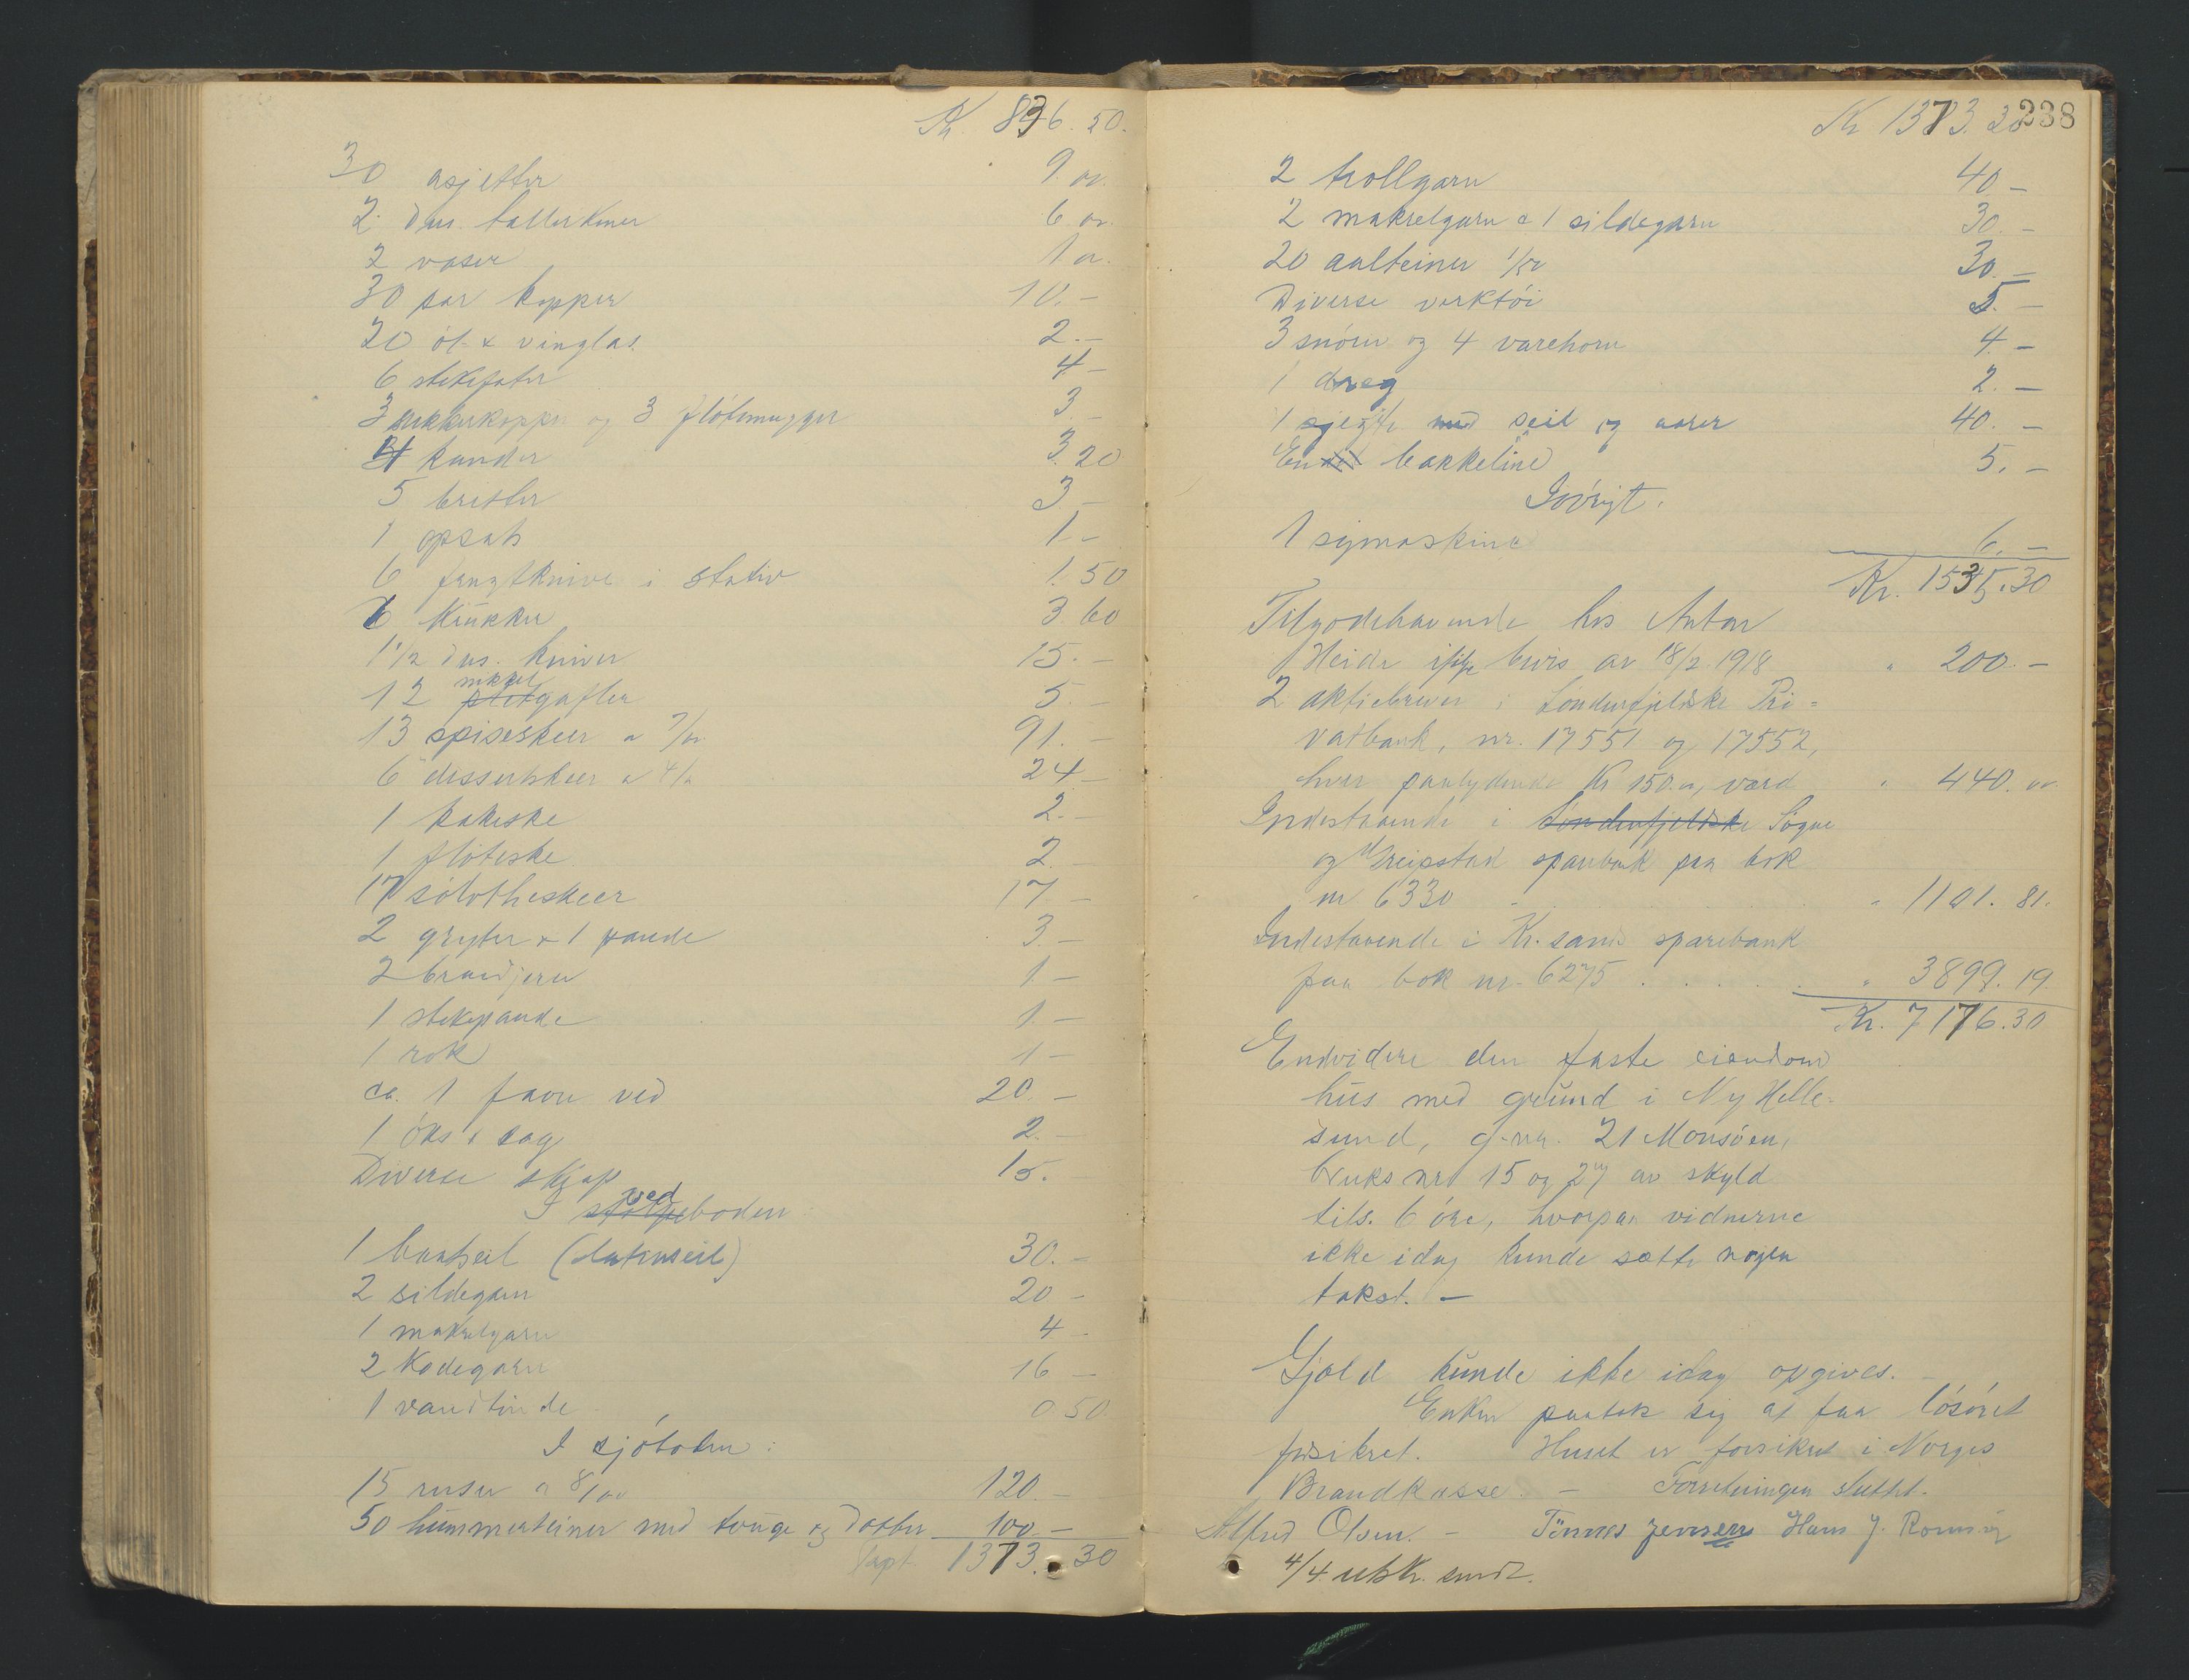 Kr 836.50.
30 asjetter 9.oo
2 dus. tallerkener 6 oo.
2 vaser 1 oo.
30 par kopper 10.–
20 öl- & vinglas 2.–
6 stekefater 4 –
3 sukkerkopper og 3 flötemugger 3 –
4 kander 3.20
5 bretter 3 –
1 opsats 1 –
6 frugtknive i stativ 1.50
6 krukker 3 60
1 1/2 dus. kniver 15.–
12 nikkel gafler 5.–
13 spiseskeer a 7/oo 91.–
6 dessertskeer a 4/oo 24.–
1 kakeske 2.–
1 flöteske 2.–
17 sölvtheskeer 17 –
2 gryter & 1 pande 3.–
2 brandjern 1 –
1 stekepande 1.–
1 rok 1 –
ca. 1 favn ved 20.–
1 öks & sag 2.–
Diverse skap 15.–
I vedboden:
1 baatseil (latinseil) 30.–
2 sildegarn 20 –
1 makrelgarn 4 –
2 Kodegarn 16 –
1 vandtinde 0 50
I sjöboden:
15 ruser a 8/oo 120.–
50 hummerteiner med touge og dobber 100.–
Tspt. 1373.30
238
Kr 1373.30
2 trollgarn 40 –
2 makrelgarn & 1 sildegarn 30.–
20 aalteiner 1/50 30.–
Diverse verktöi 5.–
3 snören og 4 varehorn 4.–
1 dreg 2.–
1 sjegte med seil og aarer 40.–
En bakkeline 5.–
Iövrigt.
1 symaskine 6.–
Kr. 1535.30
Tilgodehavende hos Anton
Heide ifölge bevis av 18/2 1918 " 200.–
2 aktiebrever i Söndenfjeldske Pri=
vatbank, nr. 17551 og 17552,
hver paalydende Kr 150.oo, værd " 440.oo
Indestaaende i Söndenfjeldske Sögne
og Greipstad sparebank paa bok
nr 6330 " 1101.81.
Indestaaende i Kr.sands sparebank
paa bok nr. 6275 . . . . " 3899.19.
Kr. 7176.30
Endvidere den faste eiendom
hus med grund i Ny Helle-
sund, g-nr. 21 Monsöen,
bruks nr 15 og 27 av skyld
tils. 6 öre, hvorpaa vidnerne
ikke idag kunde sætte nogen
takst. –
Gjæld kunde ikke idag opgives. –
Enken paatok sig at faa lösöret
forsikret. Huset er forsikret i Norges
Brandkasse. – Forretningen sluttet.
Alfred Olsen. – Tönnes Jensen Hans J. Romsög
4/4 utskr. sendt.